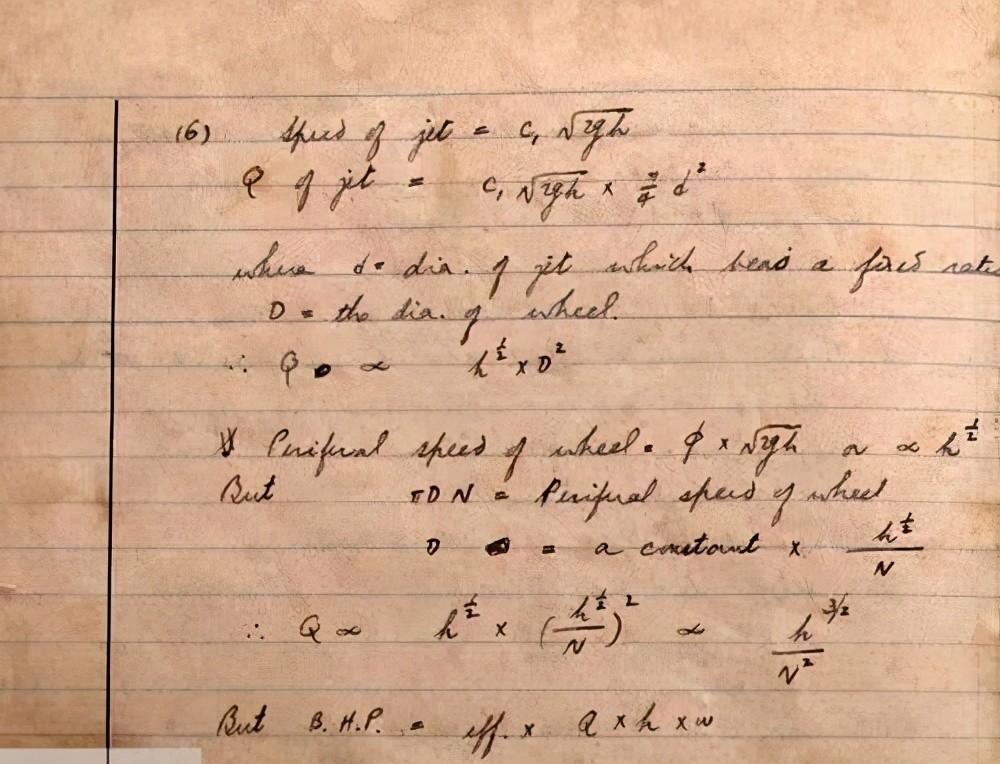 (6) Speed of jet = C₁ √2gh
Q of jet = C₁ √2gh × π/4 d²
where d = dia. of jet which bears a fixed ratio
D = the dia. of wheel.
∴ Q ∝ h^½ × D²
Periferal speed of wheel = ϕ × √2gh or ∝ h^½
But πDN = Periferal speed of wheel
D = a constant × h^½/N
∴ Q ∝ h^½ × (h^½/N)² ∝ h^3/2/N²
But B.H.P. = eff. × Q × h × w